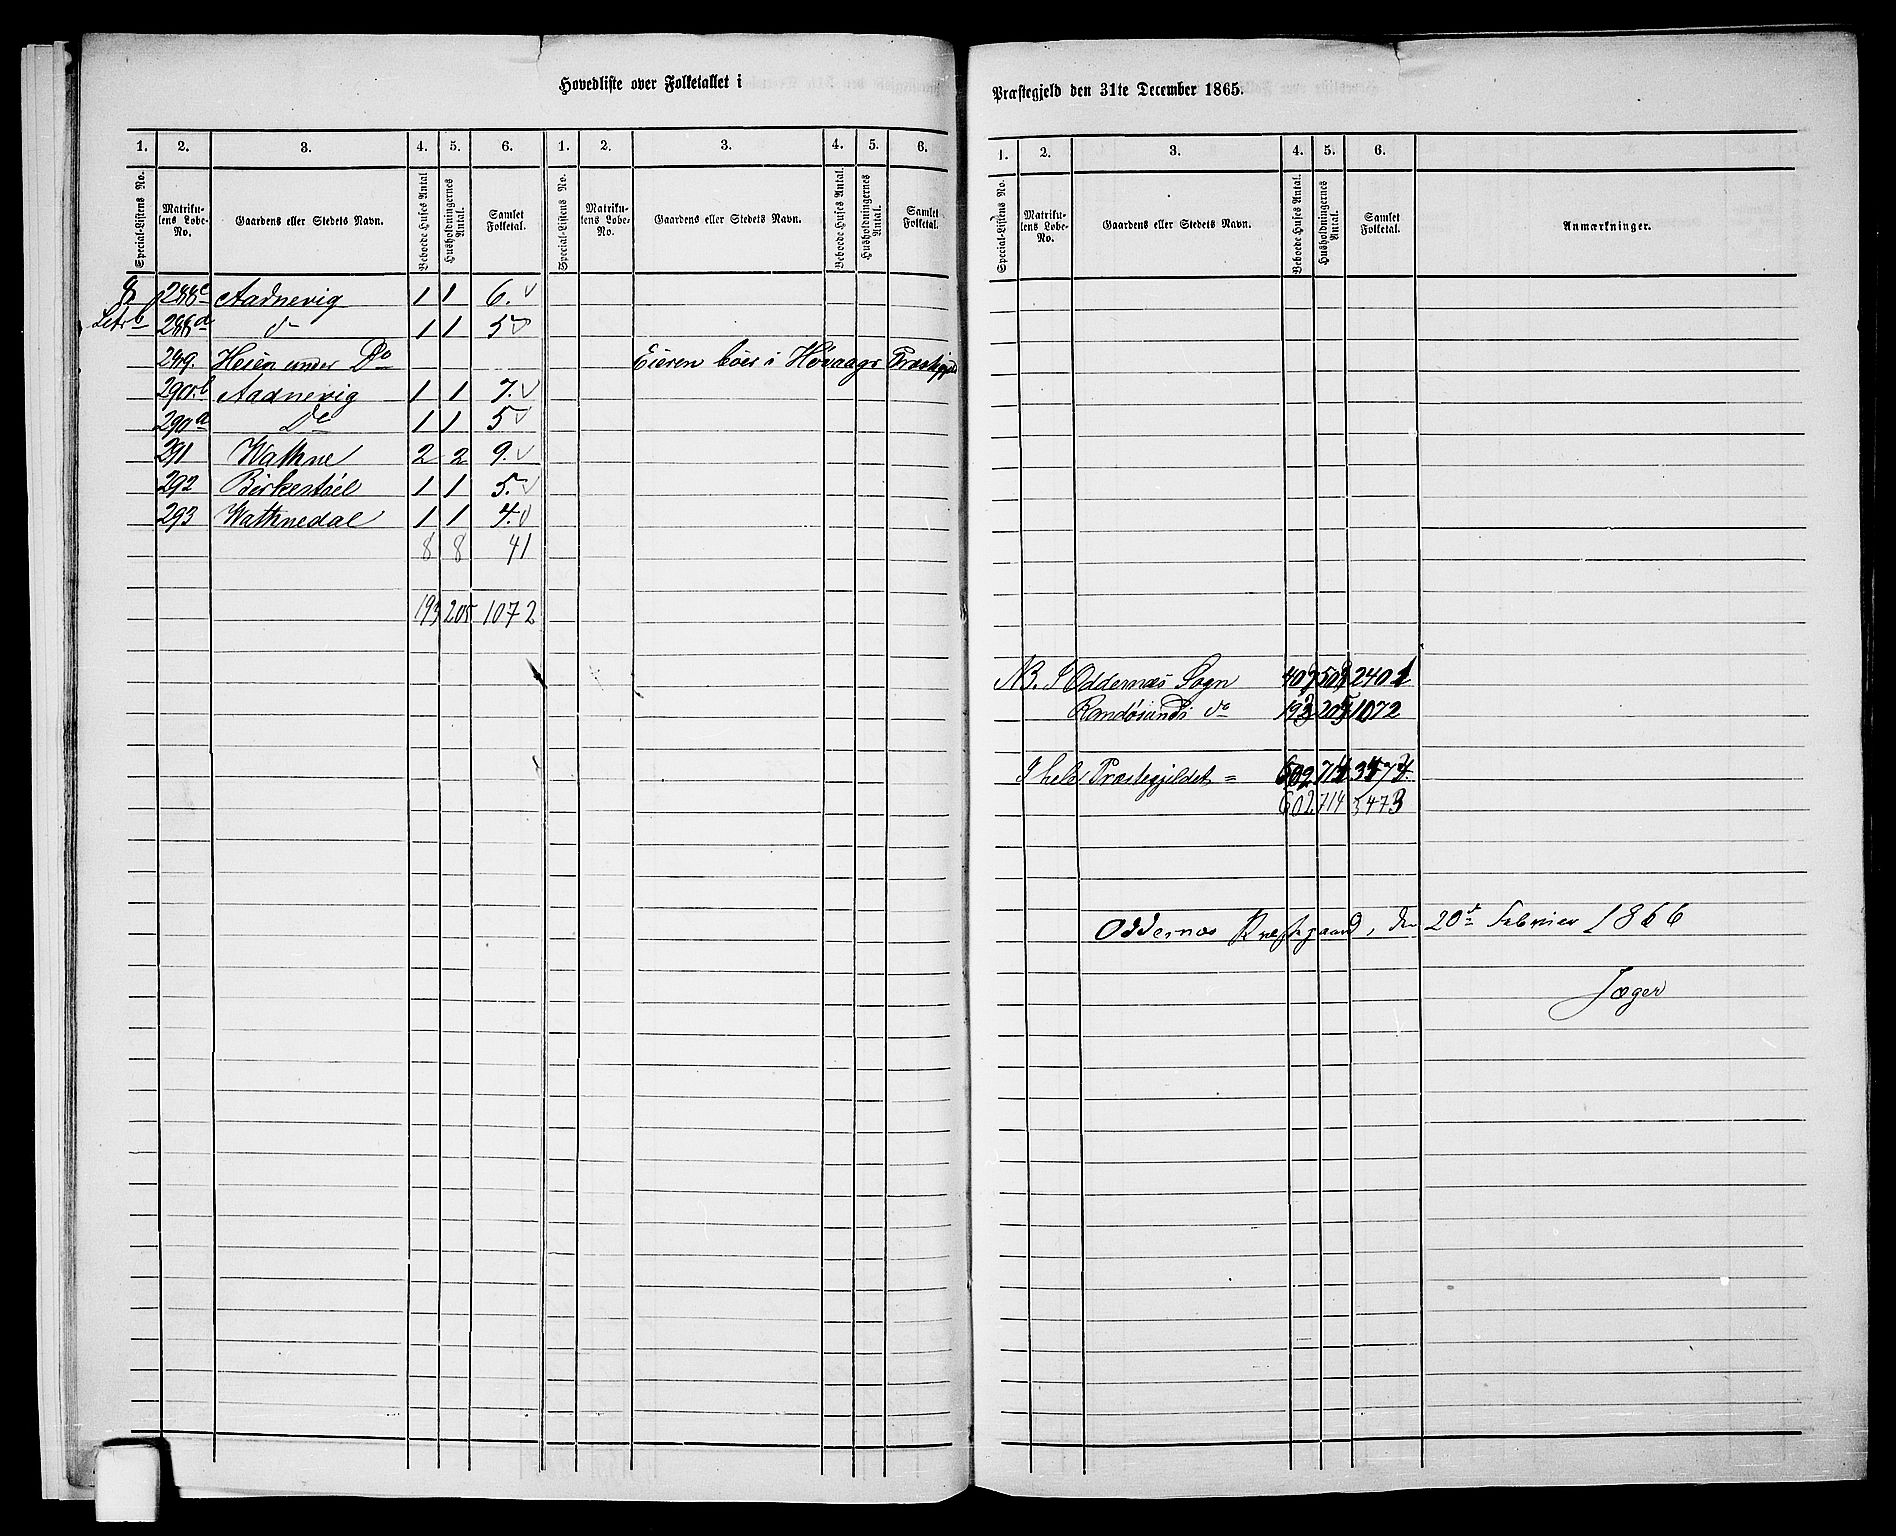 Hovedliste over Folketallet i
1. 2. 3. 4. 5. 6. 1. 2. 3. 4. 5. 6.
Special-Listens No. Matrikulens Løbe-No. Gaardens eller Stedets Navn. Beboede Huses Antal Husholdningernes Antal. Samlet Folketal. Special-Listens No. Matrikulens Løbe-No. Gaardens eller Stedets Navn. Beboede Huses Antal. Husholdningernes Antal. Samlet Folketal.
8 288c Aadnevig 1 1 6.
Litr b 288d do 1 1 5
289. Heien under Do Eieren boer i Høvaags Præstegjeld
290.b Aadnevig 1 1 7.
290a Do 1 1 5
291 Wathne 2 2 9.
292 Birkestøel 1 1 5.
293 Wathnedal 1 1 4.
8 8 41
193 205 1072
Præstegjeld den 31te December 1865.
1. 2. 3. 4. 5. 6.
Special-Listens No. Matrikulens Løbe-No. Gaardens eller Stedets Navn. Beboede Huses Antal. Husholdningernes Antal. Samlet Folketal. Anmærkninger.
NB. I Oddernæs Sogn 409 509 2401
Randøsunds do 193 205 1072
I hele Præstegjeldet = 602 714 3473.
602 714 3473
Oddernæs Præstegaard, den 20de Februar 1866
Jæger